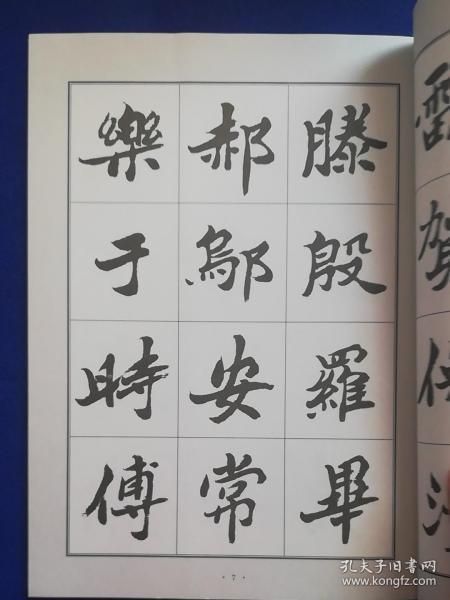 滕殷羅畢
郝鄔安常
樂于時傅
·7·
孔夫子旧书网
www.kongfz.com